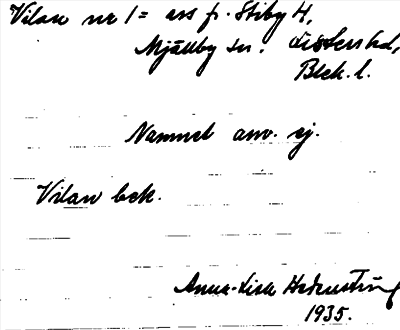 Vilan nr 1 = ars fr. Stiby 4,
Mjällby sn. Listers hd,
Blek. l.
Namnet anv. ej.
Vilan bek.
Anna-Lisa
1935.